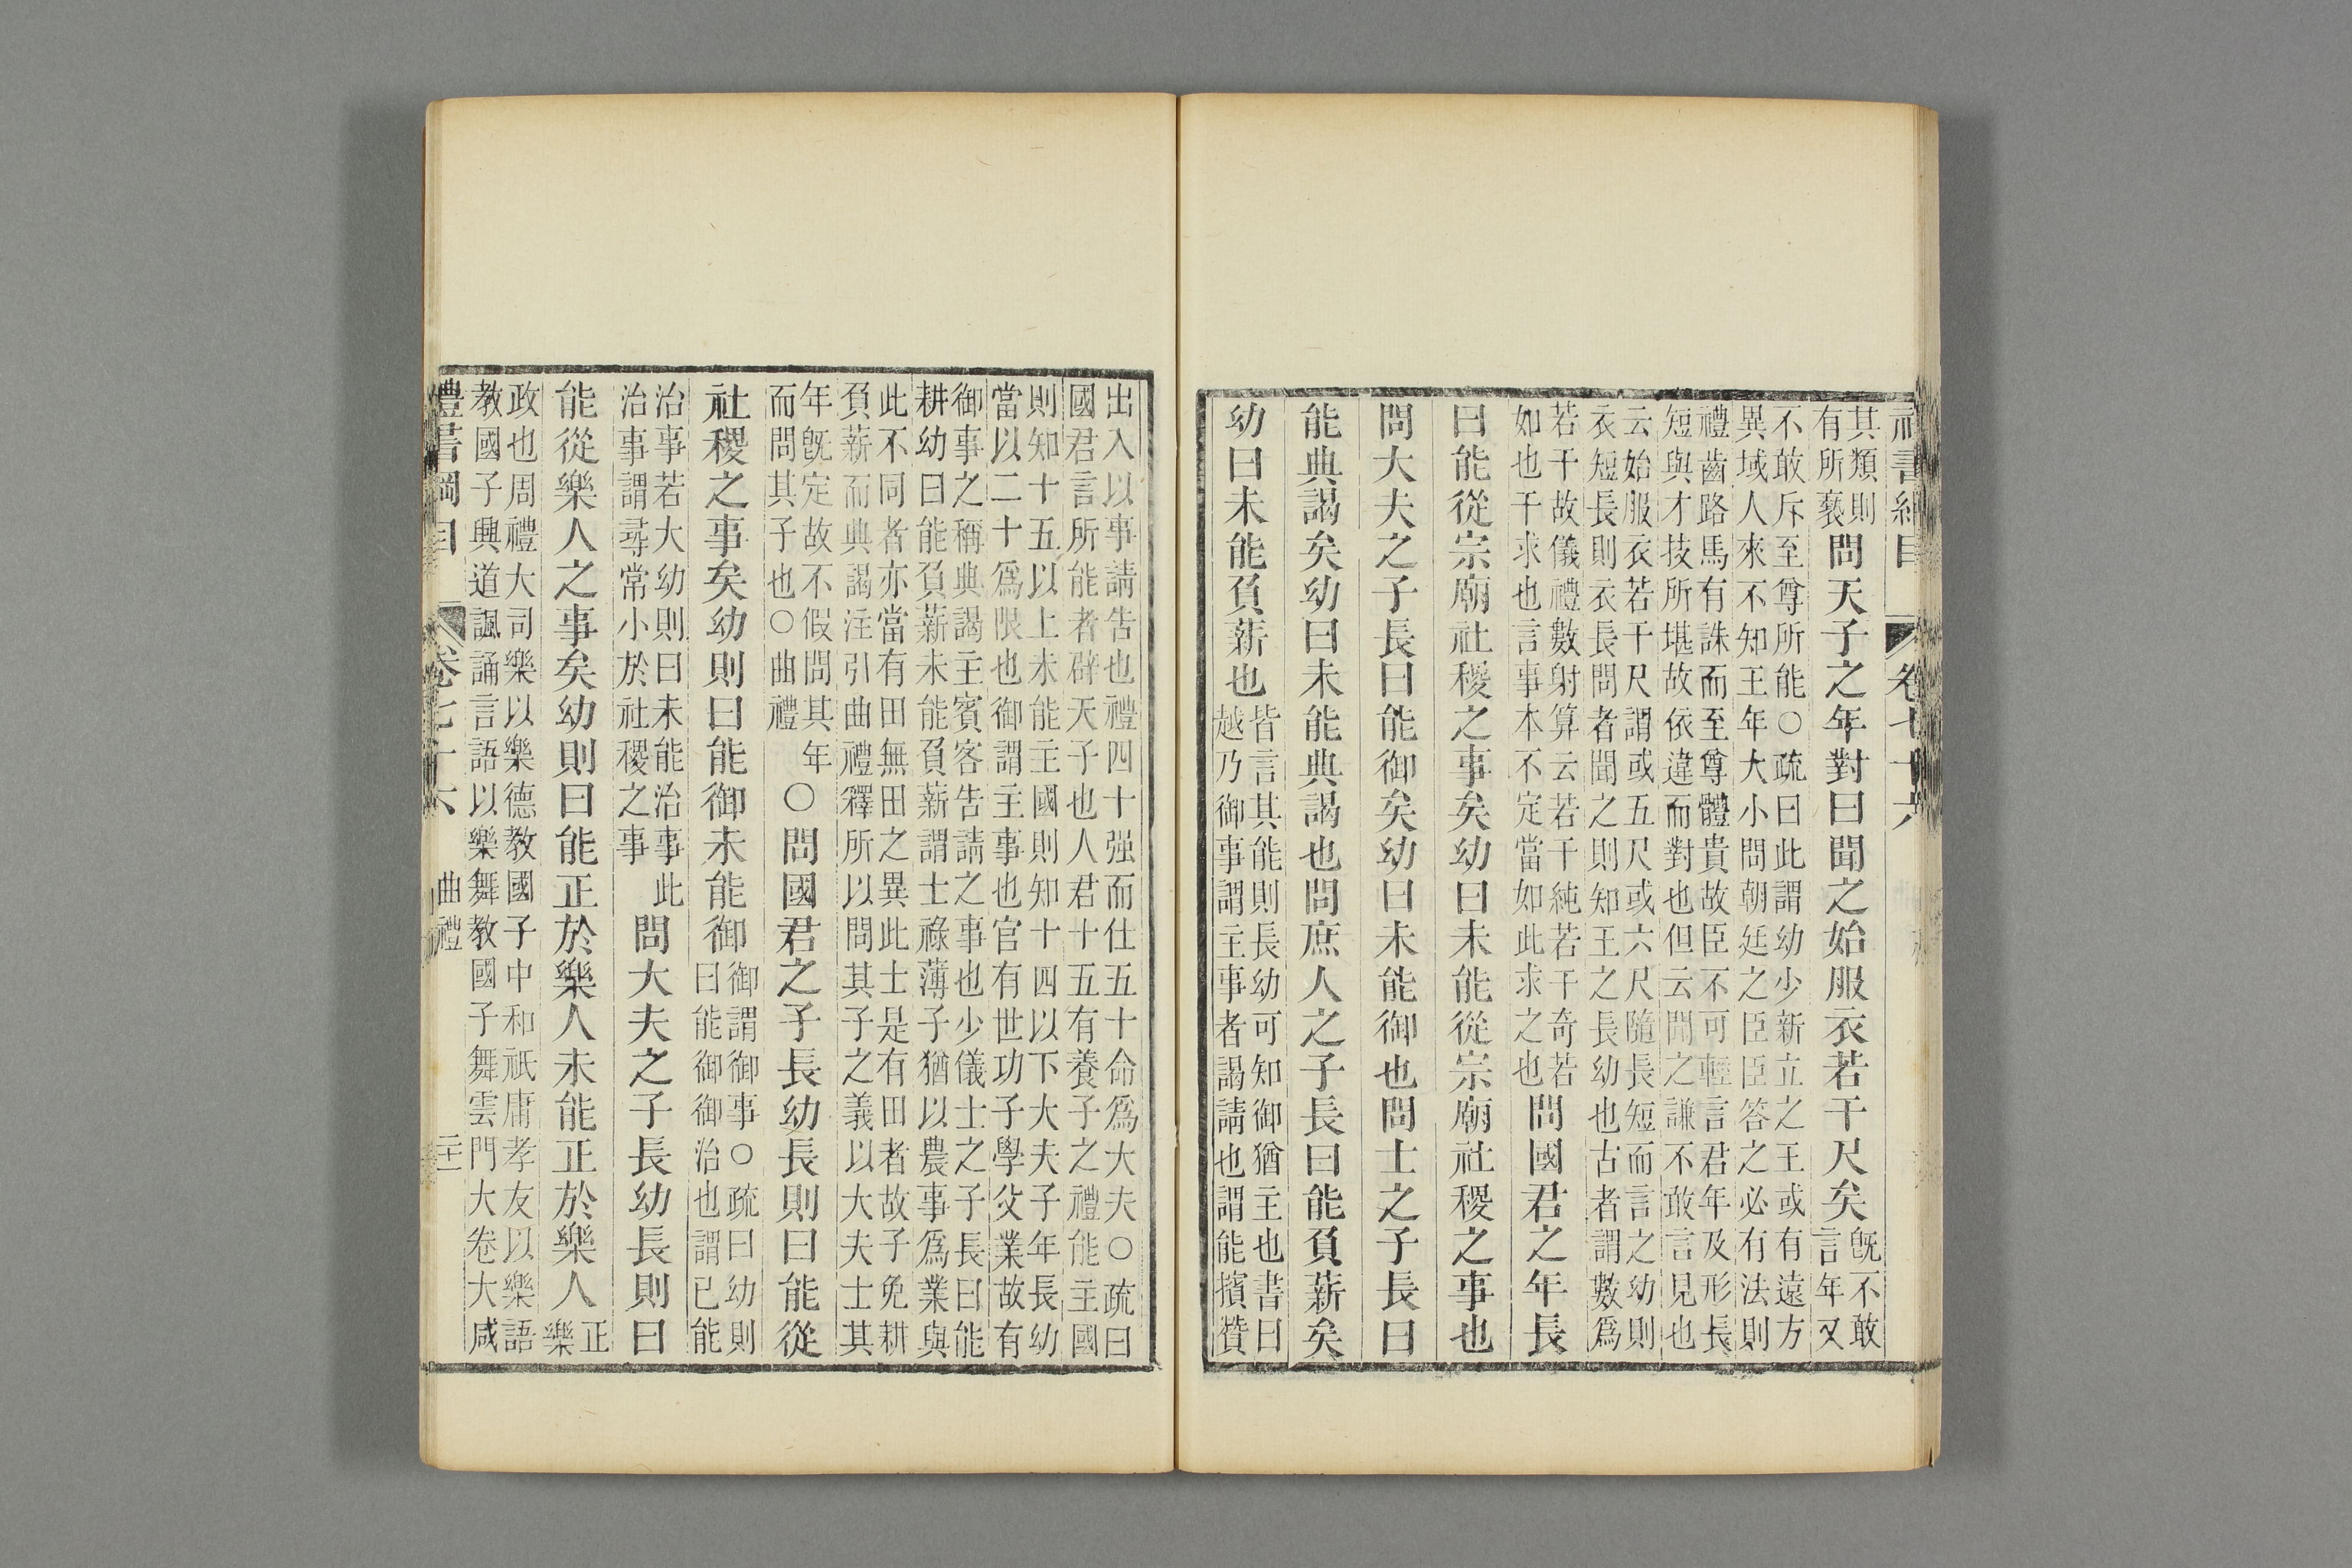 禮書綱目 卷七十六
其類則
有所褻
問天子之年對曰聞之始服衣若干尺矣
旣不敢
言年又
不敢斥至尊所能○疏曰此謂幼少新立之王或有遠方
異域人來不知王年大小問朝廷之臣臣答之必有法則
禮齒路馬有誅而至尊體貴故臣不可輕言君年及形長
短與才技所堪故依違而對也但云聞之謙不敢言見也
云始服衣若干尺謂或五尺或六尺隨長短而言之幼則
衣短長則衣長問者聞之則知王之長幼也古者謂數爲
若干故儀禮數射算云若干純若干奇若
如也干求也言事本不定當如此求之也
問國君之年長
曰能從宗廟社稷之事矣幼曰未能從宗廟社稷之事也
問大夫之子長曰能御矣幼曰未能御也問士之子長曰
能典謁矣幼曰未能典謁也問庶人之子長曰能負薪矣
幼曰未能負薪也
皆言其能則長幼可知御猶主也書曰
越乃御事謂主事者謁請也謂能擯贊
出入以事請告也禮四十强而仕五十命爲大夫○疏曰
國君言所能者辟天子也人君十五有養子之禮能主國
則知十五以上未能主國則知十四以下大夫子年長幼
當以二十爲限也御謂主事也官有世功子學父業故有
御事之稱典謁主賓客告請之事也少儀士之子長曰能
耕幼曰能負薪未能負薪謂士祿薄子猶以農事爲業與
此不同者亦當有田無田之異此士是有田者故子免耕
負薪而典謁注引曲禮釋所以問其子之義以大夫士其
年旣定故不假問其年
而問其子也○曲禮
○問國君之子長幼長則曰能從
社稷之事矣幼則曰能御未能御
御謂御事○疏曰幼則
曰能御御治也謂已能
治事若大幼則曰未能治事此
治事謂尋常小於社稷之事
問大夫之子長幼長則曰
能從樂人之事矣幼則曰能正於樂人未能正於樂人
正
樂
政也周禮大司樂以樂德教國子中和祇庸孝友以樂語
教國子興道諷誦言語以樂舞教國子舞雲門大卷大咸
禮書綱目 卷七十六 曲禮 二十二